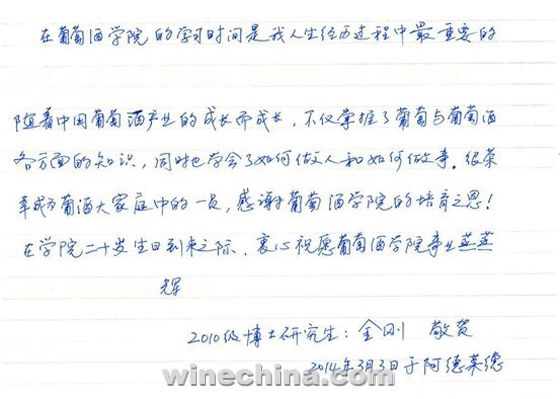 在葡萄酒学院的学习时间是我人生经历过程中最重要的
随着中国葡萄酒产业的成长而成长，不仅掌握了葡萄与葡萄酒
各方面的知识，同时也学会了如何做人和如何做事。很荣
幸成为葡萄酒大家庭中的一员，感谢葡萄酒学院的培育之恩！
在学院二十岁生日到来之际，衷心祝愿葡萄酒学院事业蒸蒸
辉
2010级博士研究生：金刚 敬贺
2014年3月3日于阿德莱德
www.winechina.com